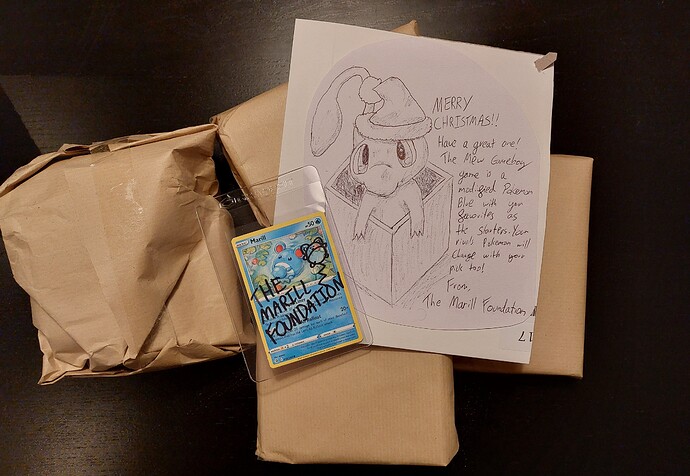 MERRY
CHRISTMAS!!
Have a great one!
The Mew Gameboy
game is a
modified Pokemon
Blue with your
favorites as
the starters. Your
rivals Pokemon will
change with your
pick too!
From,
The Marill Foundation
17
Marill
50
THE
MARILL
FOUNDATION